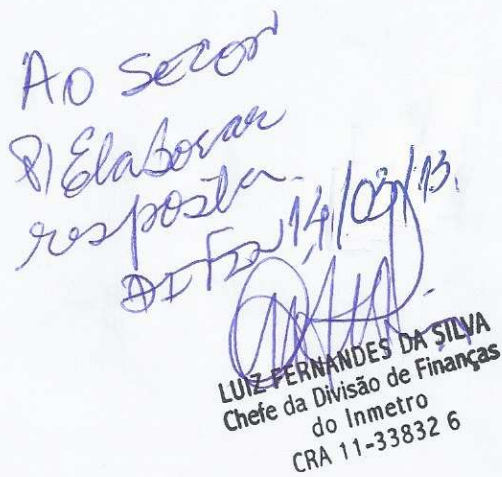 Ao Secor
P/ Elaborar
resposta.
DIFIN 14/03/13.
LUIZ FERNANDES DA SILVA
Chefe da Divisão de Finanças
do Inmetro
CRA 11-33832 6